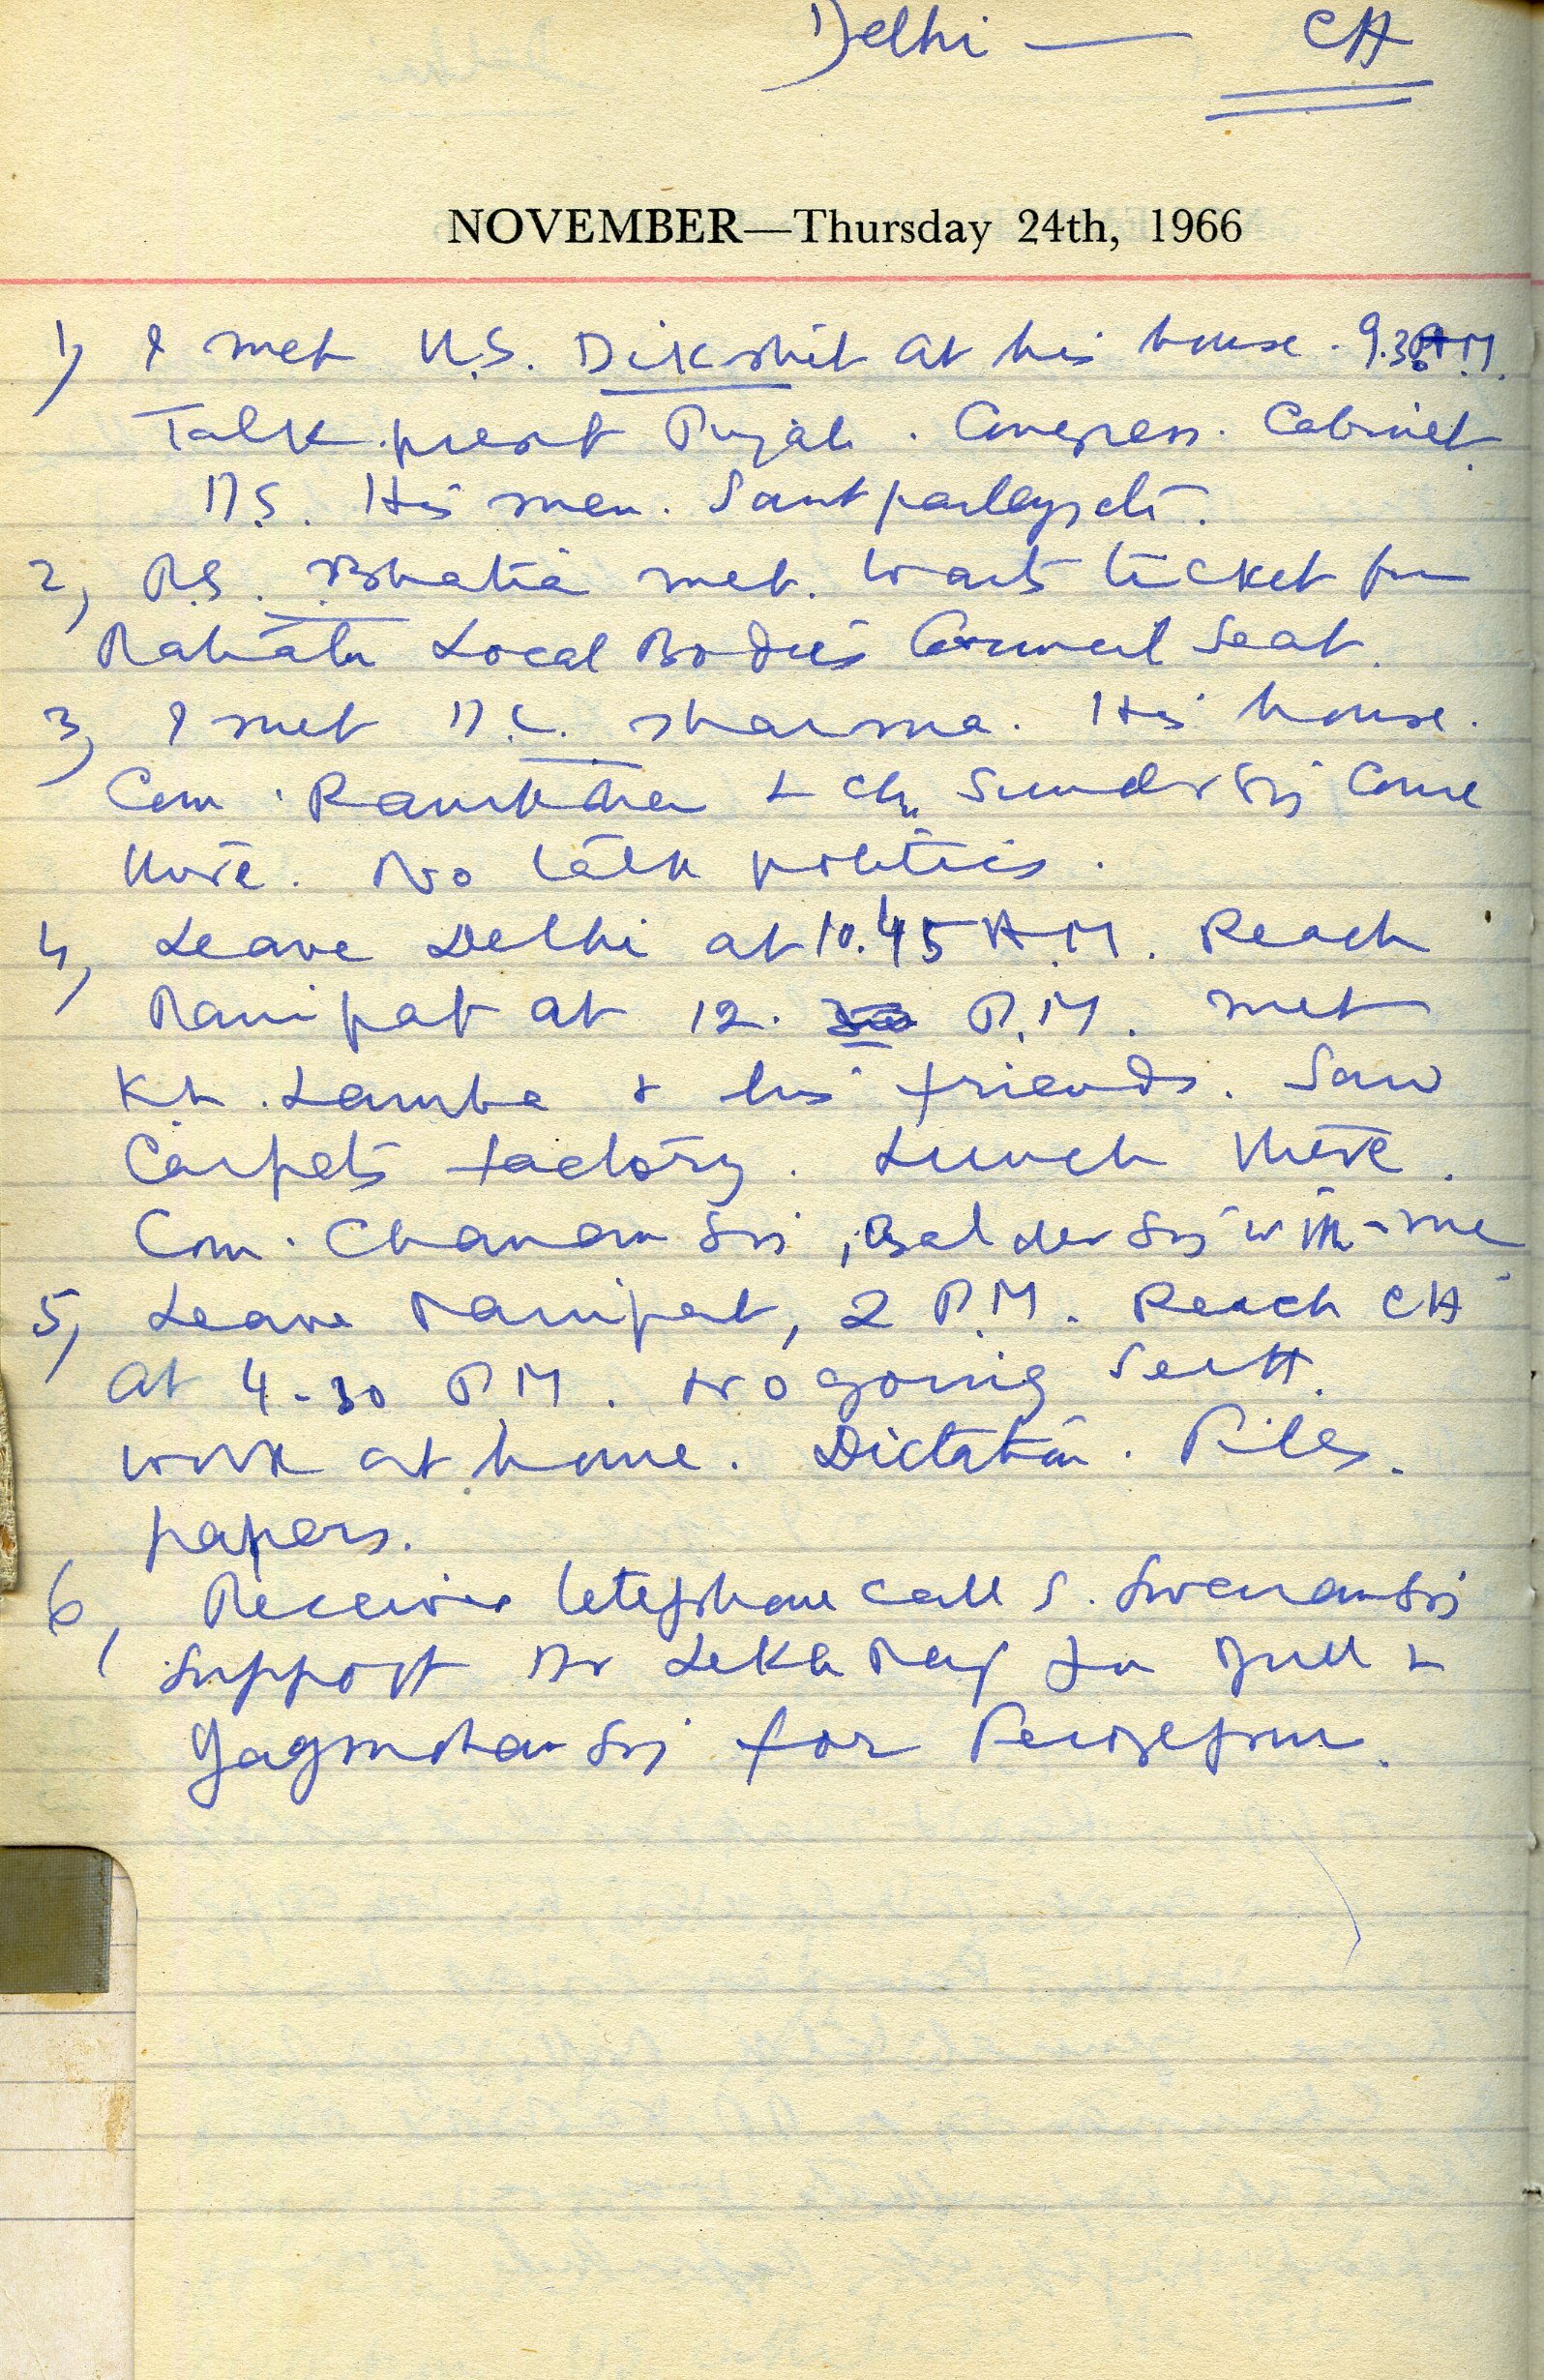 Delhi — CH
NOVEMBER—Thursday 24th, 1966
1) I met U.S. Dikshit at his house. 9.30 A.M.
Talk present Punjab. Congress. Cabinet
D.S. His men. Sant
2, P.S. Bhatia met. Wants ticket for
Patiala Local Bodies Council Seat.
3, I met D.C. Sharma. His house.
Com. Ramkishan & Ch. Sunder Sin Come
there. No talk politics.
4, Leave Delhi at 10.45 A.M. Reach
Panipat at 12. P.M. met
Kh. Lamba & his friends. Saw
Carpets factory. Lunch there.
Com. Chanan Sin, Baldev Sin with me
5, Leave Panipat, 2 P.M. Reach CH
at 4-30 P.M. No going Sectt.
work at home. Dictation. Files.
papers.
6, Receive telephone call S. Swaran Sin
Support Dr Lekh Raj for Jull &
Jagmohan Sin for Ferozepur.